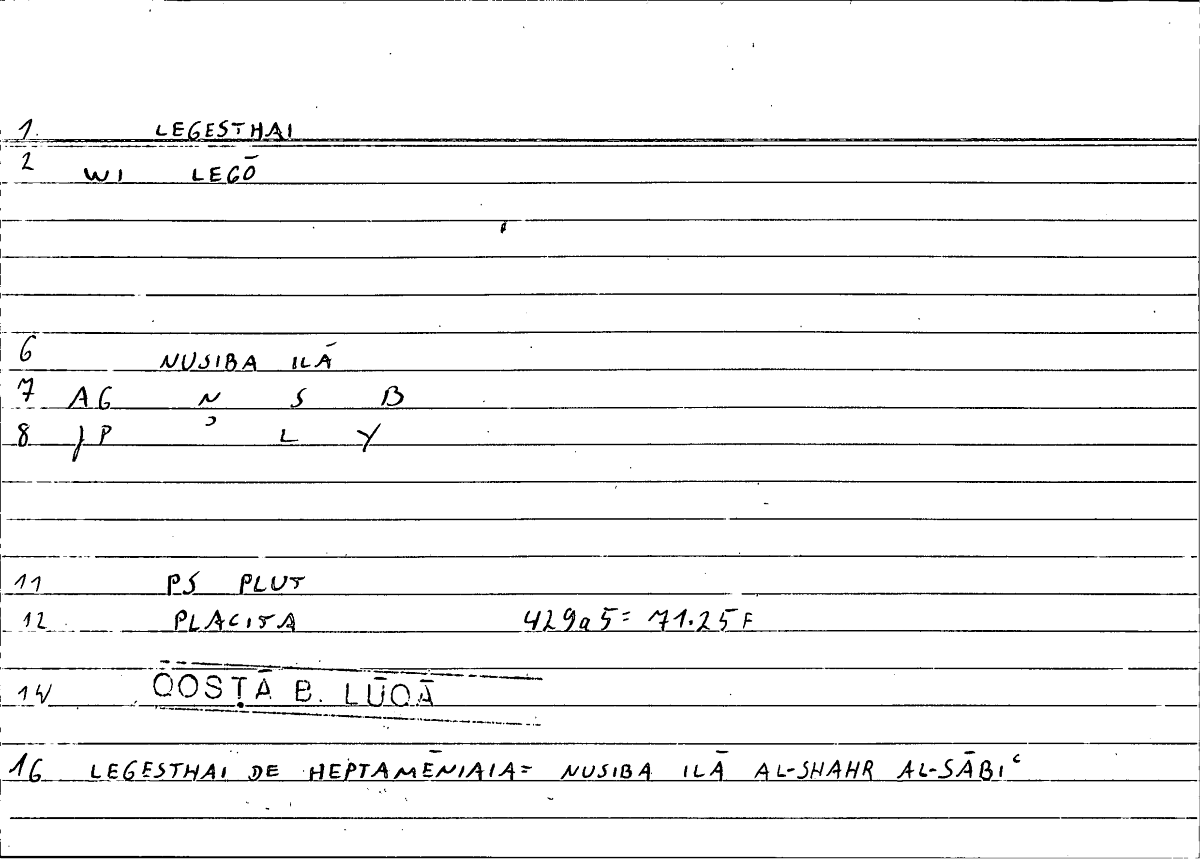 1. LEGESTHAI
2 WI LEGŌ
6 NUSIBA ILĀ
7 AG N S B
8 JP ʾ L Y
11 PS PLUT
12 PLACITA 429a5 = 71.25 F
14 QOSṬĀ B. LŪQĀ
16 LEGESTHAI DE HEPTAMĒNIAIA = NUSIBA ILĀ AL-SHAHR AL-SĀBIʿ